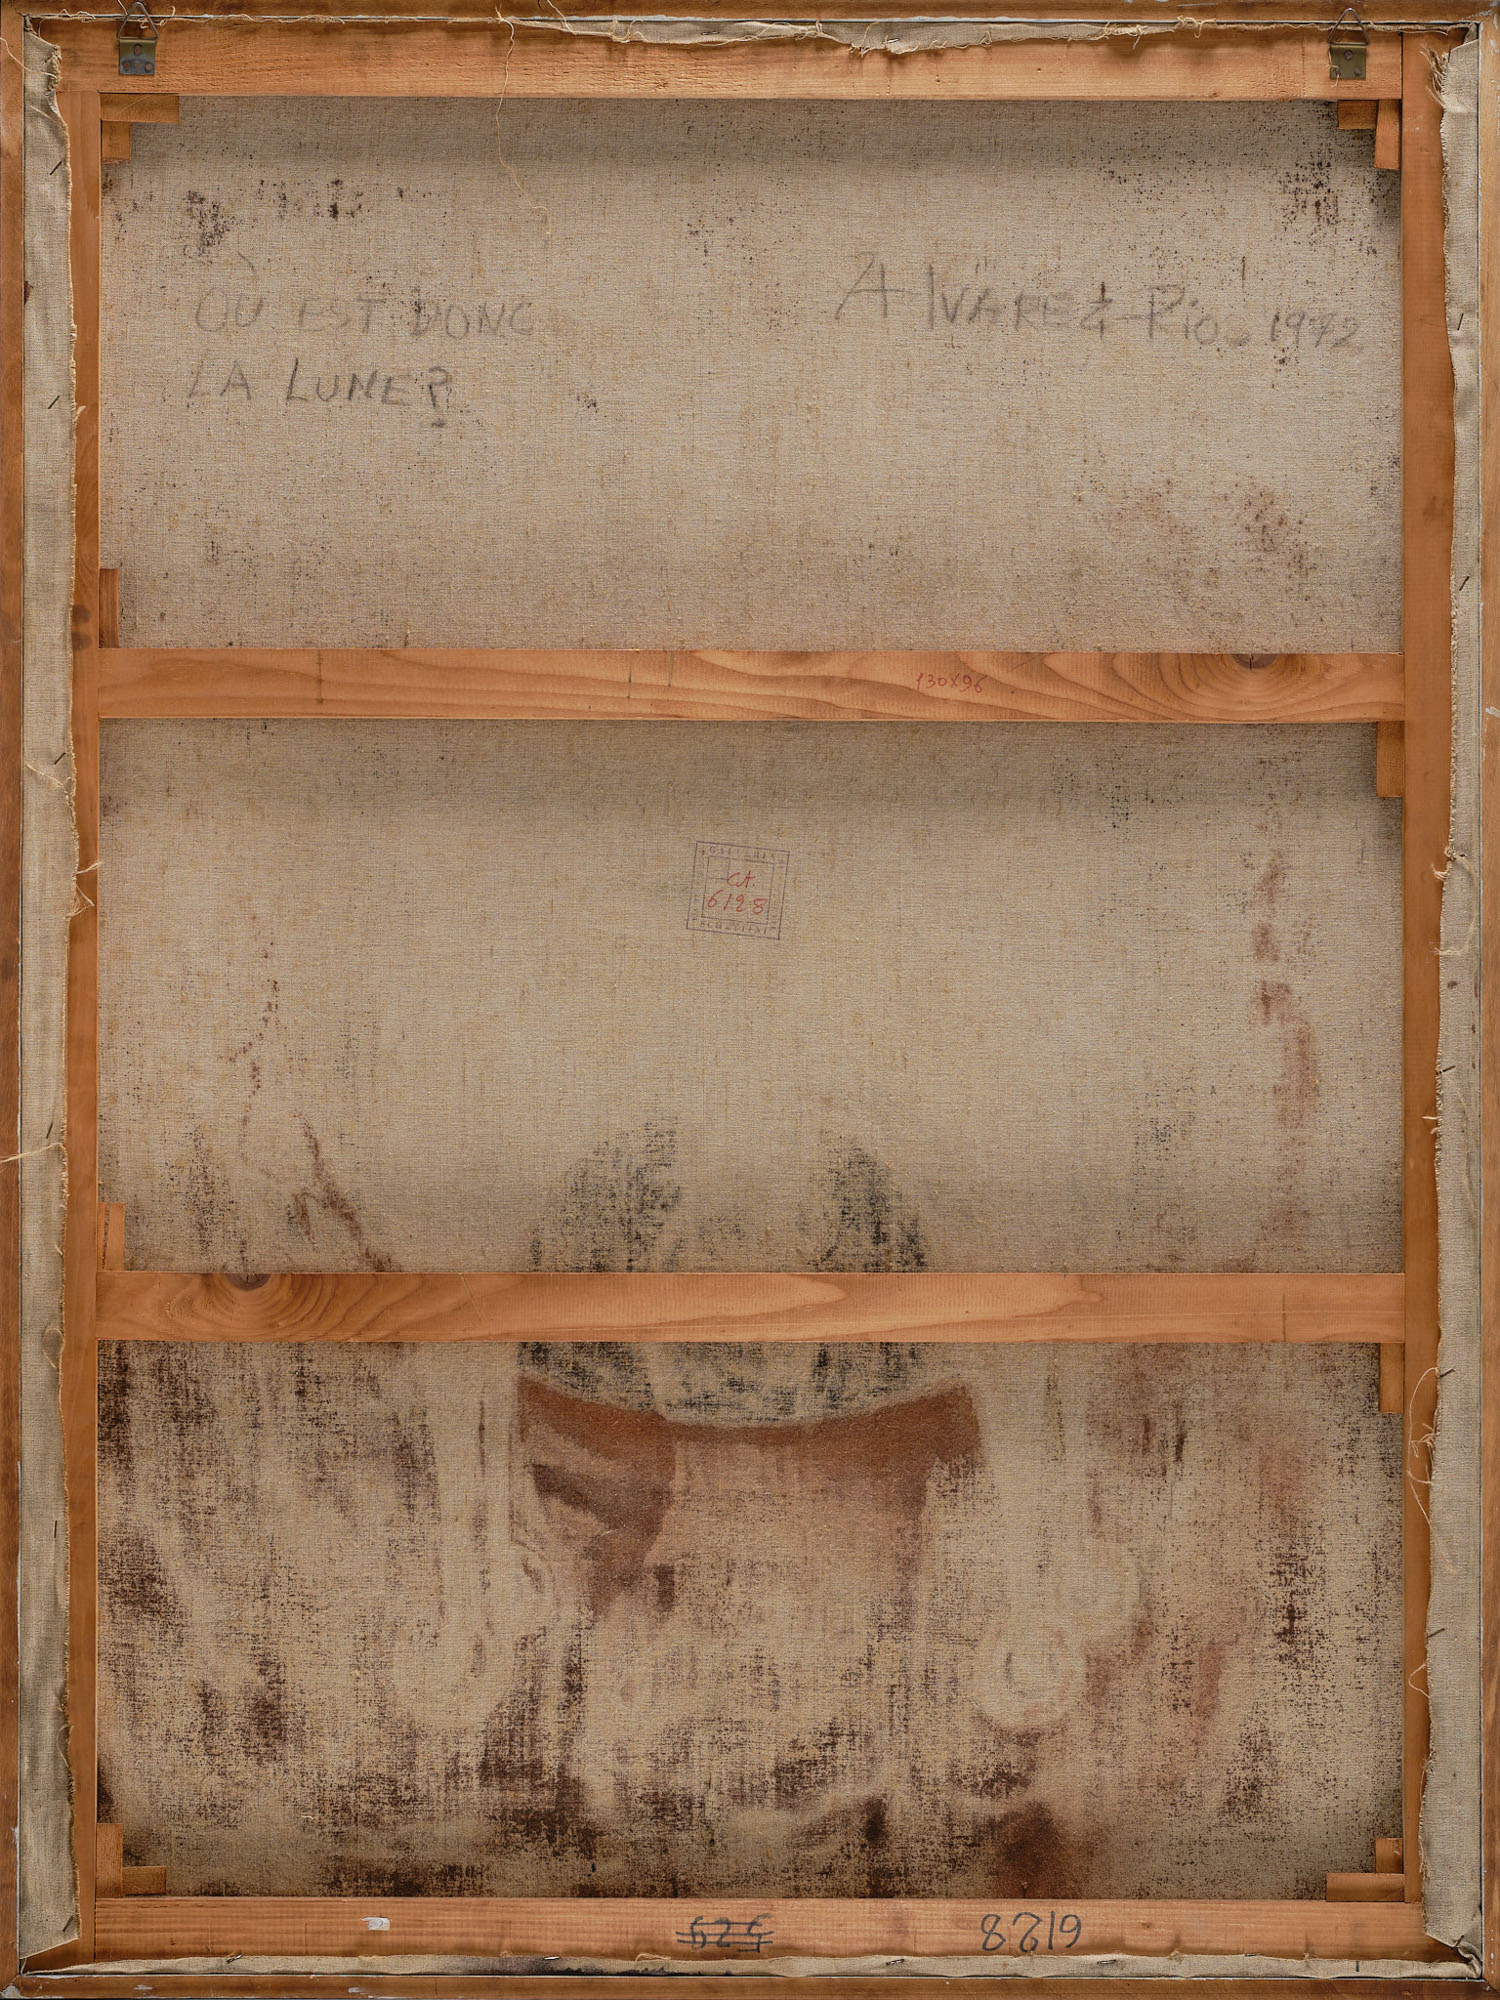 OÙ EST DONC
LA LUNE?
Alvarez-Rios 1972
130x96
GALLERIA
CA.
6128
SCHWARZ
626
6128